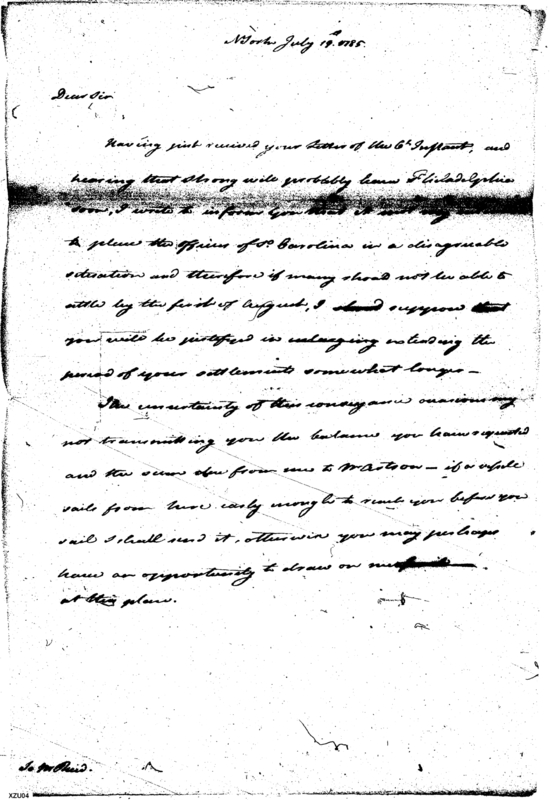 NYork July 19th 1785.
Dear Sir
Having just recived your Letter of the 6th Instant, and
hearing that Strong will probbly leave Philadelphia
soon, I write to inform you that it was not my
to place the officers of So Carolina in a disagreable
situation and therefore if many shoud not be able to
settle by the first of August, I shoud suppose that
you will be justifyed in enlarging extending the
period of your settlements somewhat longer —
The uncertainty of this conveyance occasions my
not transmitting you the balance you have requested
and the sum due from me to Mr — if a vessle
sails from here early enough to reach you before you
sail I shall send it, otherwise you may perhaps
have an opportunity to draw on me
at this place.
To Mr Reid.
XZU04